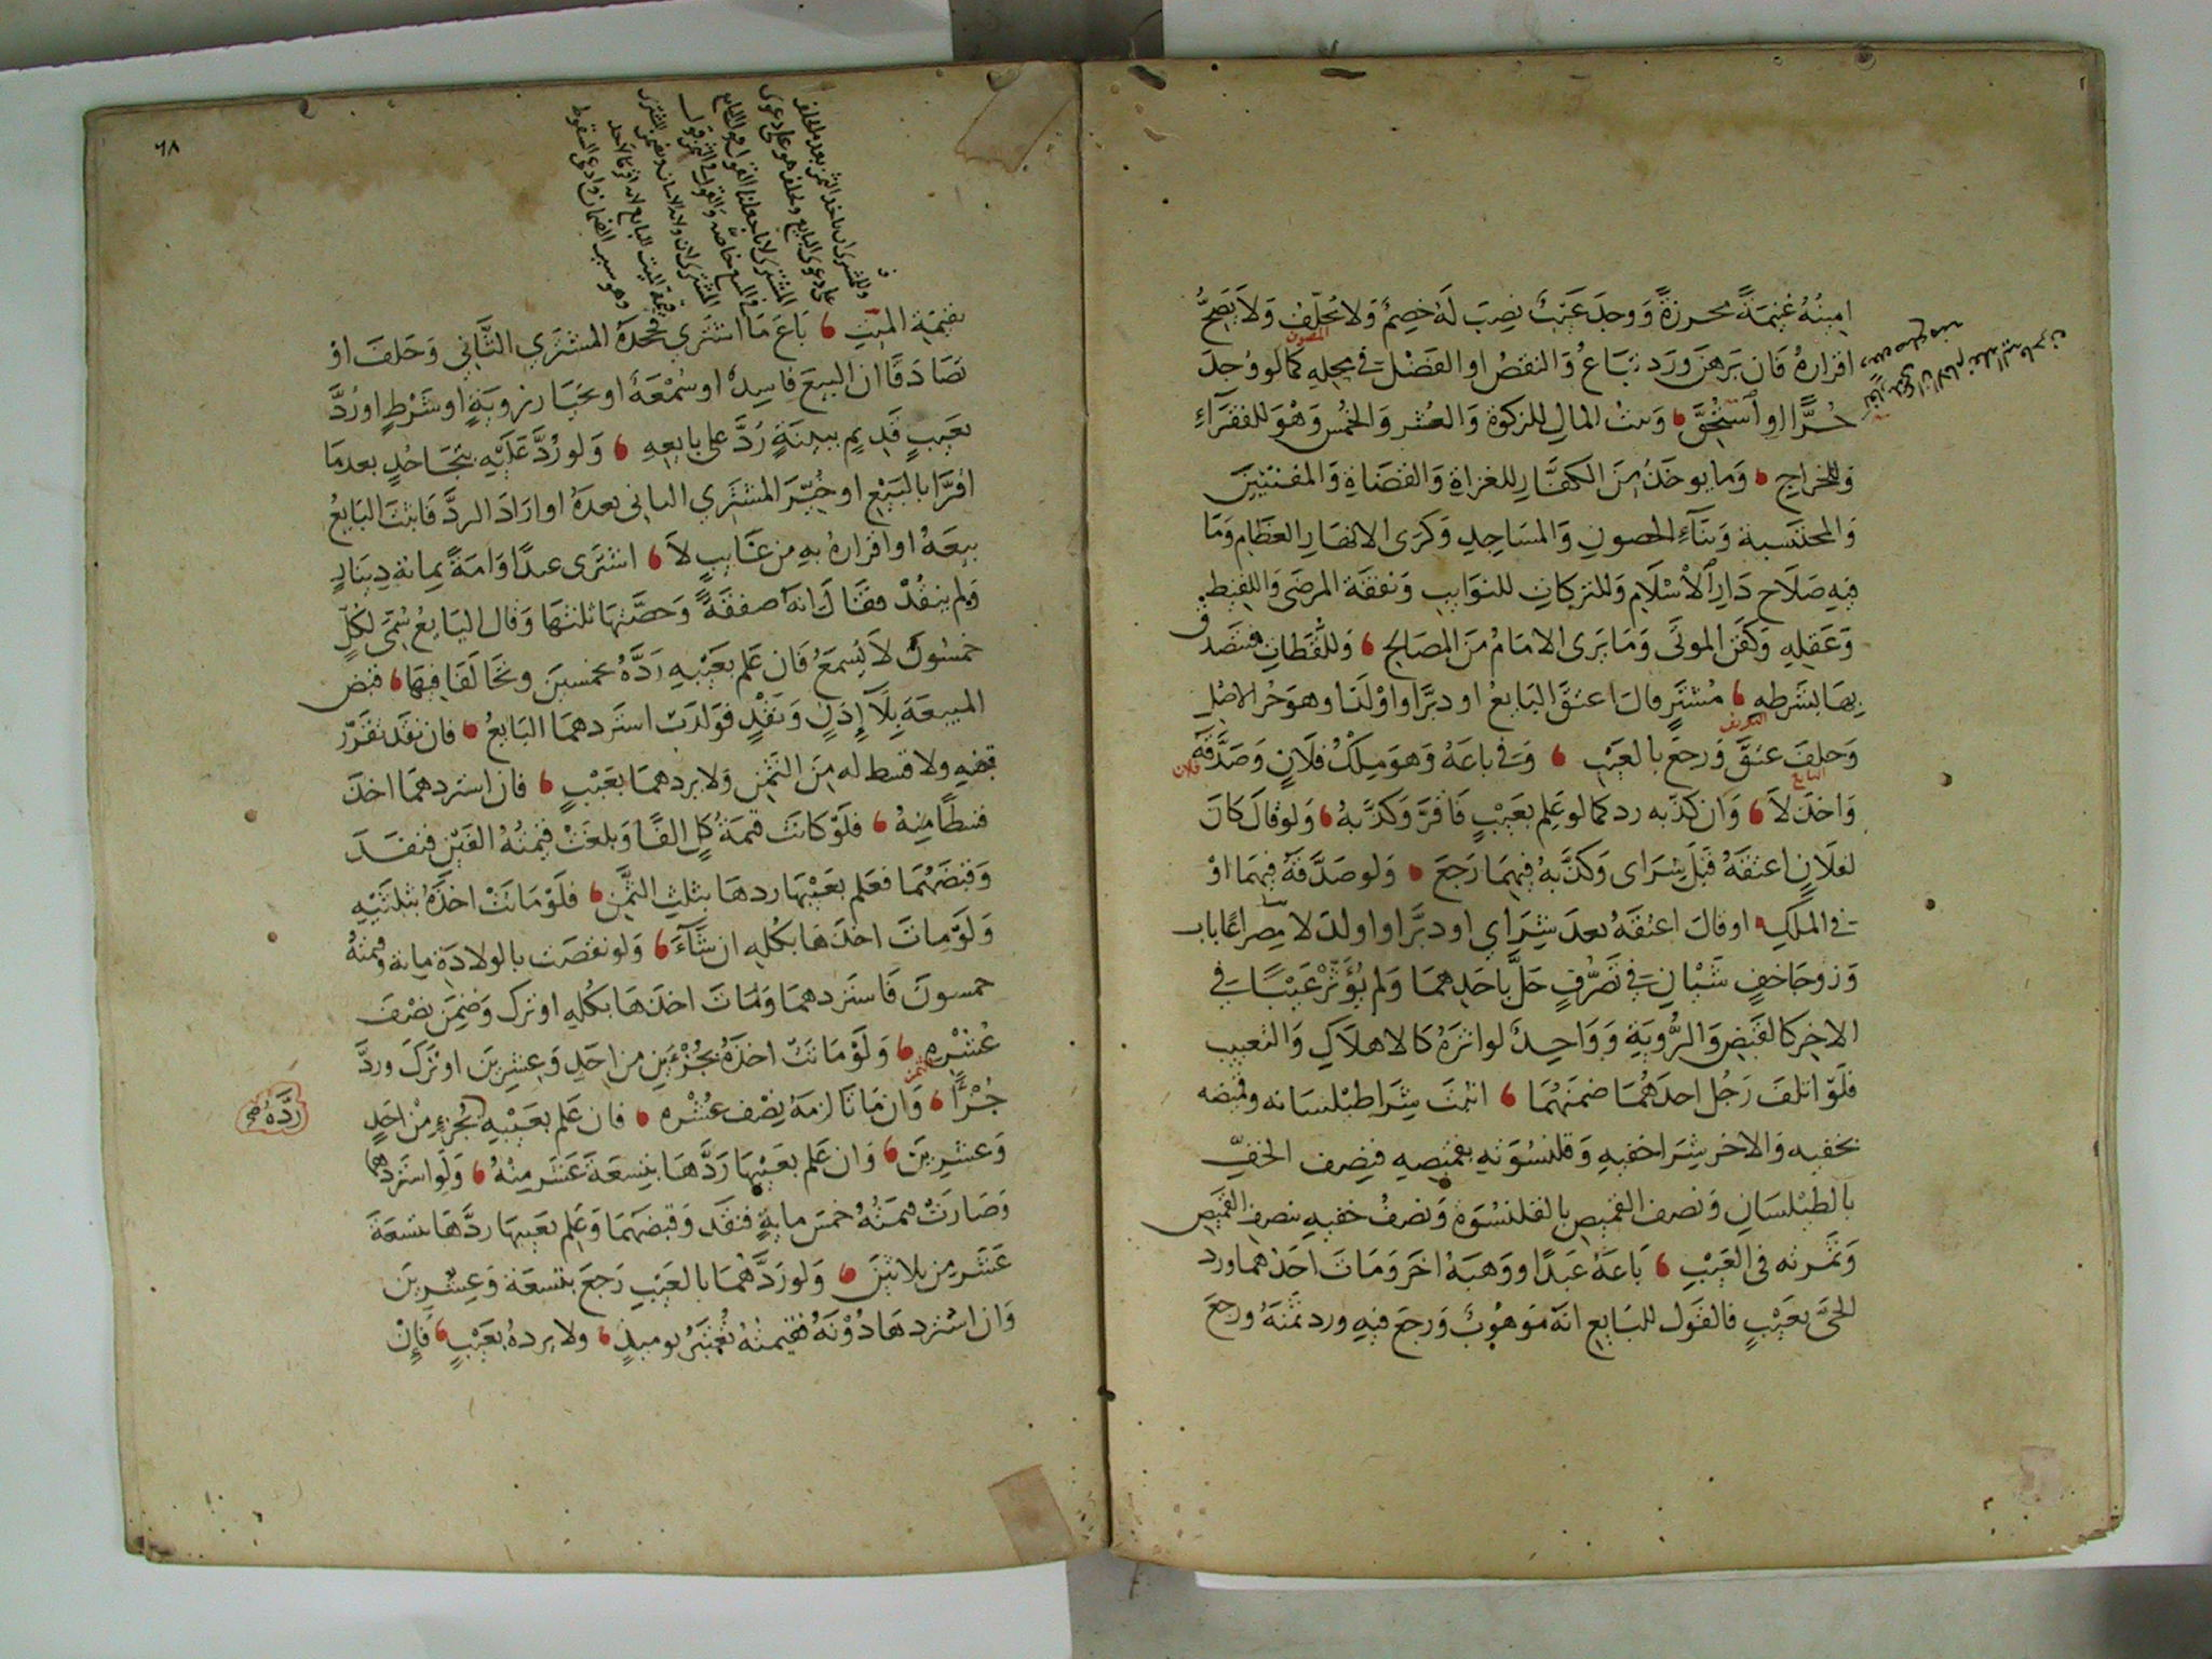 امينُهُ غنِيمَةً محرزةً وَوجدَ عَيْبٌ نصِبَ لَهُ خصِمٌ وَلا يُحلَّفُ وَلاَ يَصِحُّ
اقرارهُ فَان بَرهَنَ ورَد تبَاعُ وَالنقصُ او الفَضْلُ في محِلهِ كما لو وُجدَ
حُرًّا او اُسْتُحِقَّ وَبيتُ المالِ للزكوةِ وَالعُشرِ وَالخمُسِ وَهْوَ للفقَرَآءِ
وَللخراجِ وَما يوخَذُ مِنَ الكفَّارِ للغزاةِ وَالقضَاةِ وَالمفتِيْنَ
وَالمحتَسبة وَبنَآءِ الحصونِ وَالمسَاجِدِ وَكرَى الانهَارِ العظَامِ وَمَا
فِيهِ صَلاَح دَارِ اْلاسْلاَمِ وَللتركاتِ للنوَايبِ وَنفقَة المرضَى وَاللقيط
وَعَقلِهِ وَكفَنِ الموتَى وَمَا يَرى الامَامُ مِنَ المصَالحِ وَللُّقَطَاتِ فتتصَدق
بِهَا بشَرطهِ مُشترٍ قالَ اعتقَ البَايعُ او دبَّرَ او اوْلَدَ او هوَ حُر الاصْلِ
وَحلفَ عتقَ وَرجعَ بالعَيْبِ وَفي باعَهُ وَهوَ مِلْكُ فلاَنٍ وَصَدَّقَهُ فلان
وَاخذَ لاَ وَان كذّبه رد كمَا لو عَلِم بعَيْبٍ فَاقرَّ وَكذَّبهُ وَلو قالَ كانَ
لفلاَنٍ اعتقَهُ قبْلَ شِرَاى وَكذَّبهُ فِيهِمَا رَجَعَ وَلو صَدَّقَهُ فِيهِمَا اوْ
في الملكِ او قالَ اعتقَهُ بعدَ شِرَاي او دبَّرَ او اولدَ لا مِصراعَا باب
وَزوجَا خفٍ شَيْانِ في تصَرُّفٍ حَلَّ باحَدِهمَا وَلم يُؤَثّرْ عَيْبًا في
الاخِر كالقَبْضِ وَالرُّويَةِ وَوَاحِدٌ لو اثرَهُ كالاهلاَكِ وَالتعييبِ
فلَوْ اتلفَ رَجُل احدَهُمَا ضمنَهُمَا اثبتَ شِرَا طيْلسَانه وقميصه
بخفيه وَالاخر شِرَا خفيهِ وَقلنسُوَتهِ بقميصِهِ فنِصف الخفِّ
بالطيْلسَانِ وَنصف القميصِ بالقلنسُوَةِ وَنصفُ خفيهِ بنصف القميص
وَثمَرته في العَيْبِ بَاعَهُ عَبدًا ووَهبَهُ اخرَ وَمَاتَ احَدُهما ورد
الحىَّ بعَيْبٍ فالقَول للبَايعِ انَّهُ مَوهُوبٌ وَرجعَ فيهِ ورد ثمنَهُ ورجعَ
٦٨
بقيمَةِ الميّتِ بَاعَ مَا اشترَى فجحدَهُ المشتري الثَّاني وَحَلفَ اوْ
تصَادَقَا ان البيعَ فاسِدٌ او سُمْعَةٌ او بخيَارِ رُويَةٍ او شَرْطٍ او رُدَّ
بعَيبٍ قدِيمٍ ببيّنَةٍ رُدَّ على بايعِهِ وَلو رُدَّ عَليْهِ بتجَاحُدٍ بعدمَا
اقرَّا بالبَيْعِ او خُيّرَ المشتَرِي الثاني بعدَهُ او ارَادَ الردَّ فَاثبتَ البَايعُ
بيعَهُ او اقرارهُ بهِ من غَايبٍ لاَ اشترَى عبدًا وَامَةً بماية دِينَارٍ
وَلم ينقُدْ فقَالَ انه صفقةً وَحصَّتهَا ثلثهَا وَقال البَايعُ سُمّىَ لكُلٍّ
خمسُونَ لاَ يُسمَعُ فَان عَلم بعَيْبهِ رَدَّهُ بخمسينَ وتحَالفَا فِيهَا قبض
المبيعَةَ بِلاَ إِذنٍ وَنَقْدٍ فوَلدَتْ استردهمَا البَايعُ فان نقَد تقَرّر
قبضهِ ولا قسط له مِنَ الثمَنِ وَلا يردهمَا بعَيْبٍ فان استردهمَا اخذَ
قسطًا مِنهُ فلَوْ كانتْ قيمَةُ كلٍ الفًا وَبلغتْ قيمتُهُ الفَيْنِ فنقدَ
وَقبضَهُمَا فعَلم بعَيْبهَا ردهَا بثلثِ الثمَنِ فلَوْ مَاتتْ اخذَهُ بثلثَيْهِ
وَلَوْ مِاتَ اخذهَا بكُلهِ ان شَآءَ وَلو نقصَت بالولادَةِ ماية وقيمتهُ
خمسونَ فَاستردهمَا وَمَاتَ اخذَهَا بكُلهِ او ترك وَضمِنَ نصْفَ
عُشْرِهِ وَلَوْ مَاتتْ اخذَهُ بجُزْءَينِ من احَدٍ وَعِشرِينَ او تركَ وردَّ
جُزْءًا وَان مَاتَا لزمَهُ نصْف عُشْره فان عَلم بعَيْبهِ بجُزءٍ مِنْ احَدٍ
ردَّهُ صح
وَعشرِينَ وَان عَلم بعَيْبهَا رَدَّهَا بتِسعَةَ عَشرَ مِنْهُ وَلو استردهما
وَصَارَتْ قيمَتُهُ خمسَ مايةٍ فنقَد وَقبضَهُمَا وَعَلِم بعَيبهَا ردَّهَا بتسعَةَ
عَشَر مِن ثلاثينَ وَلو رَدَّهُمَا بالعَيْبِ رَجعَ بتسعَة وَعِشْرِينَ
وَان استردهَا دُوْنَهُ فقيمتهُ تُعْتبَرُ يوميذٍ ولا يردهُ بعَيْبٍ فَإِنْ